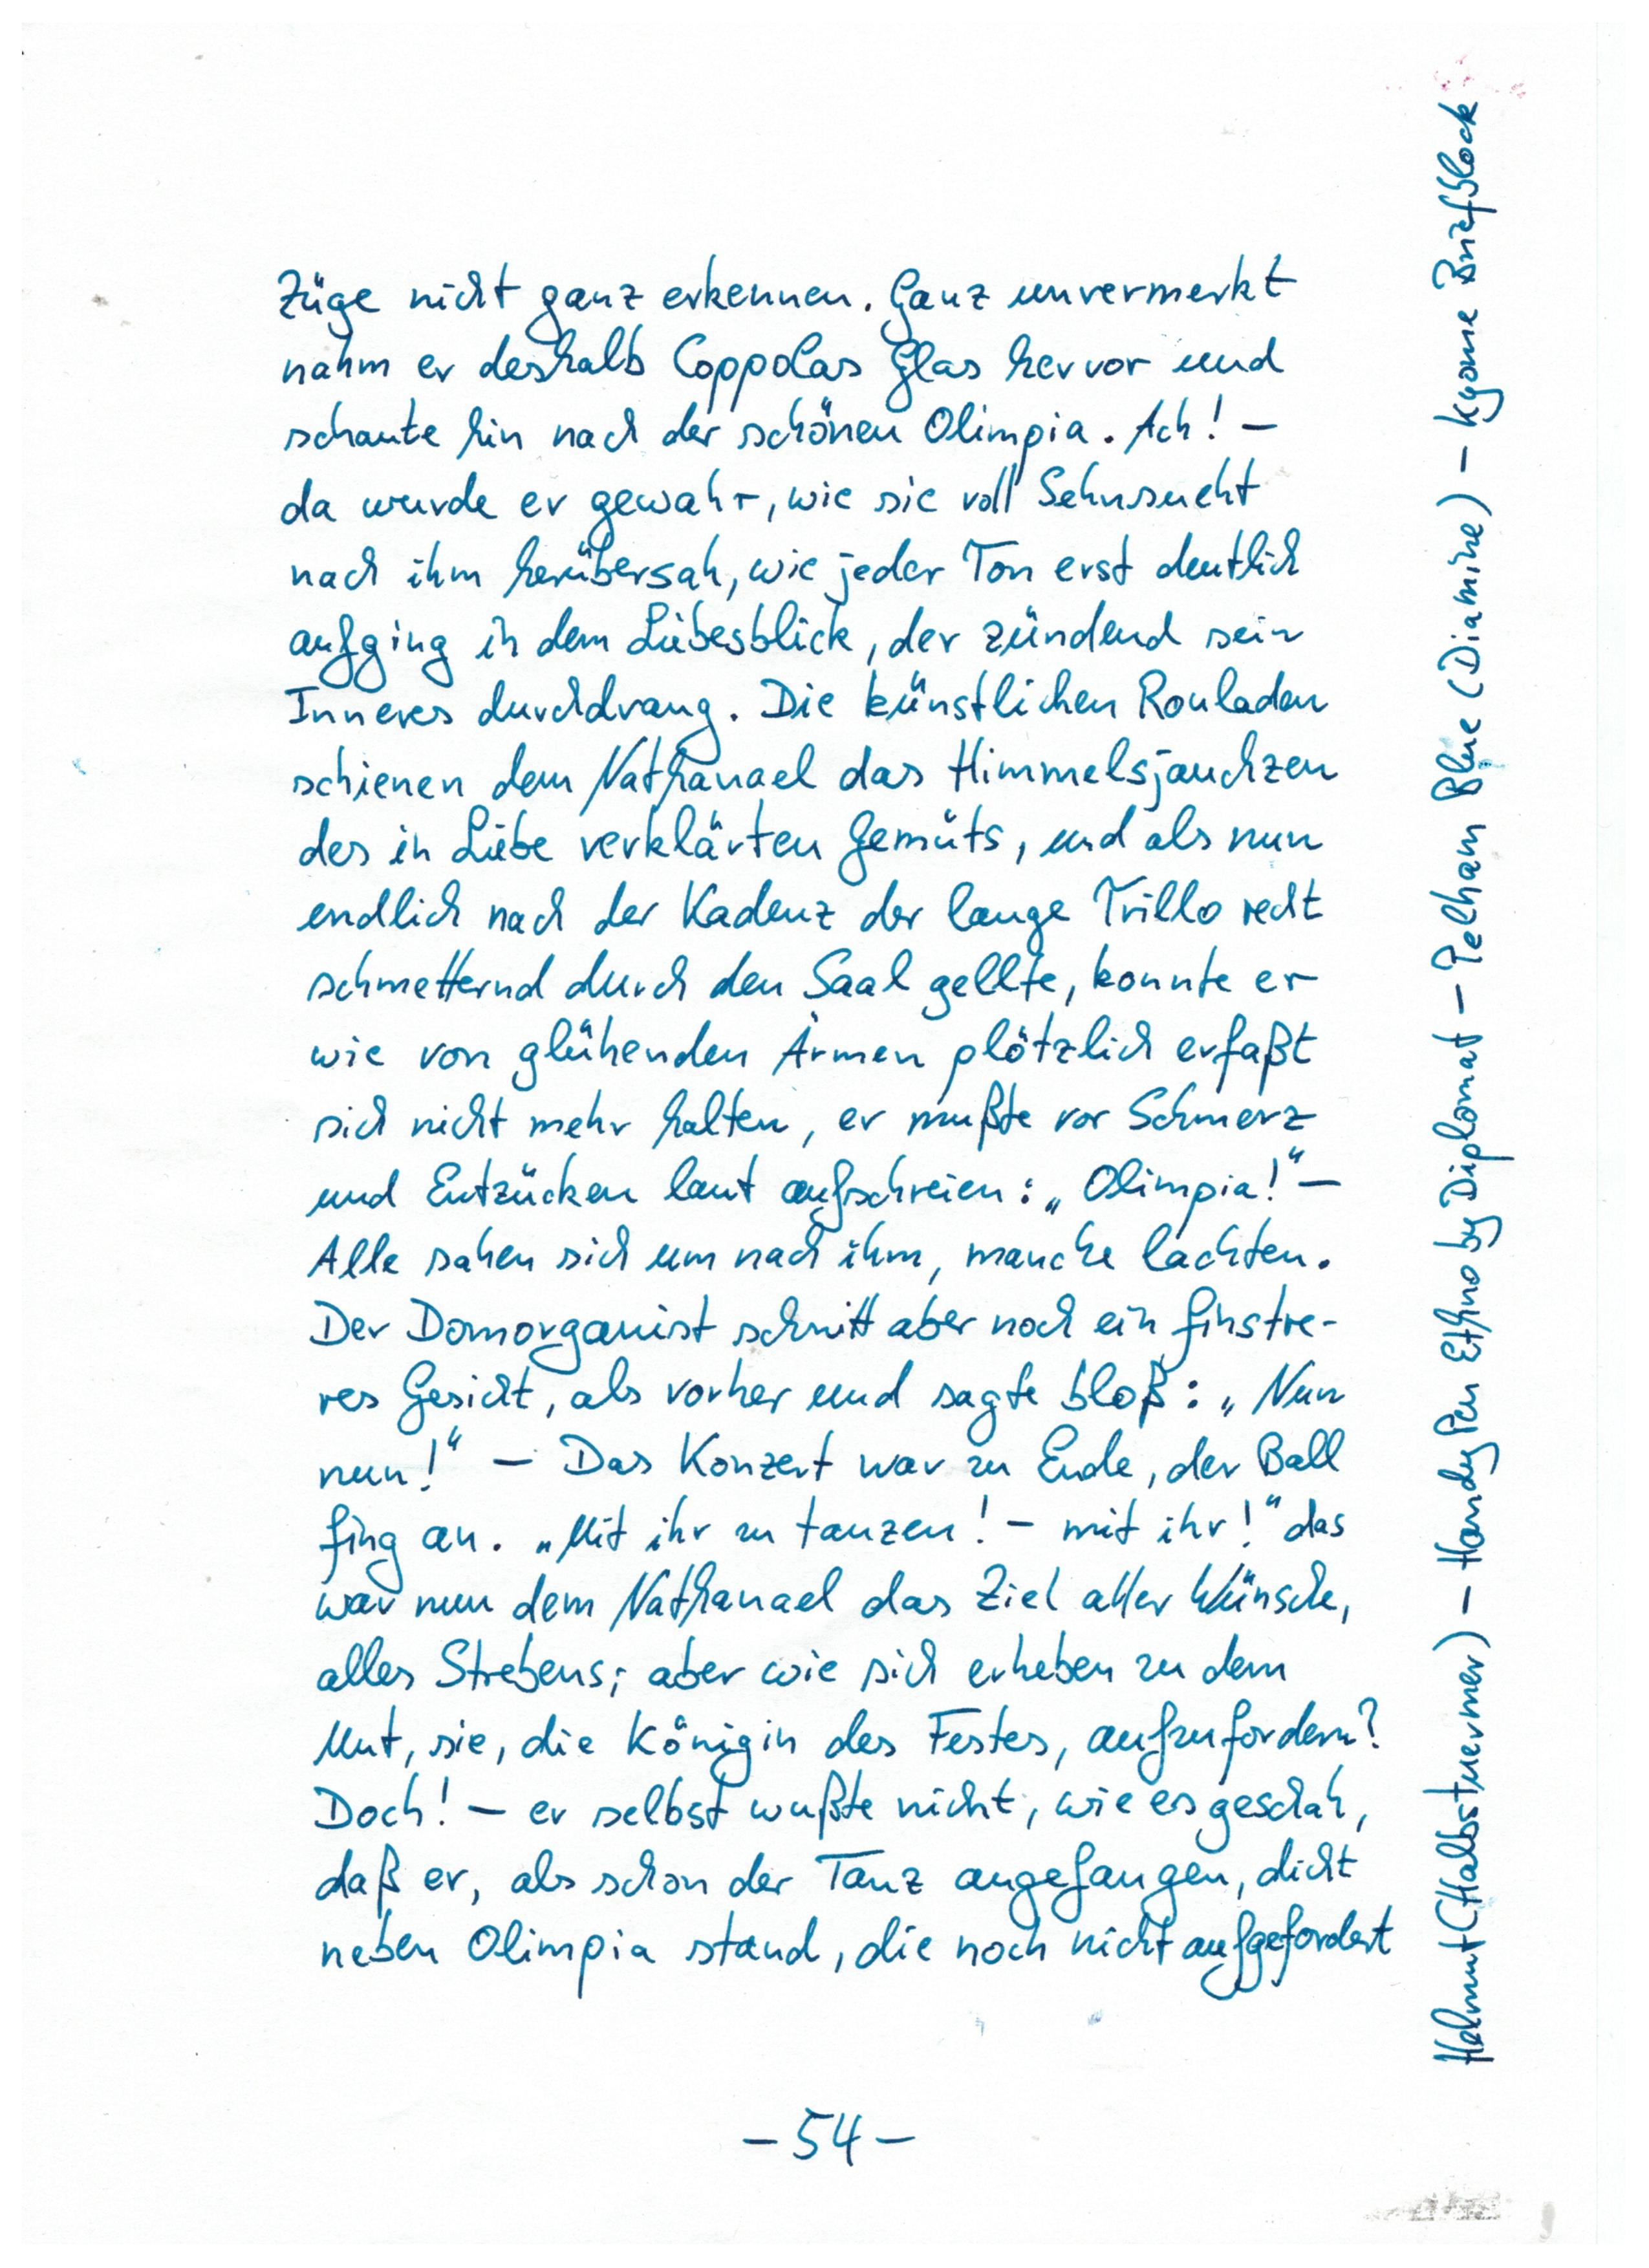 Züge nicht ganz erkennen. Ganz unvermerkt
nahm er deshalb Coppolas Glas hervor und
schaute hin nach der schönen Olimpia. Ach! –
da wurde er gewahr, wie sie voll Sehnsucht
nach ihm herübersah, wie jeder Ton erst deutlich
aufging in dem Liebesblick, der zündend sein
Inneres durchdrang. Die künstlichen Rouladen
schienen dem Nathanael das Himmelsjauchzen
des in Liebe verklärten Gemüts, und als nun
endlich nach der Kadenz der lange Trillo recht
schmetternd durch den Saal gellte, konnte er
wie von glühenden Ärmen plötzlich erfaßt
sich nicht mehr halten, er mußte vor Schmerz
und Entzücken laut aufschreien: „Olimpia!“ –
Alle sahen sich um nach ihm, manche lachten.
Der Domorganist schnitt aber noch ein finstre-
res Gesicht, als vorher und sagte bloß: „Nun
nun!“ – Das Konzert war zu Ende, der Ball
fing an. „Mit ihr zu tanzen! – mit ihr!“ das
war nun dem Nathanael das Ziel aller Wünsche,
alles Strebens; aber wie sich erheben zu dem
Mut, sie, die Königin des Festes, aufzufordern?
Doch! – er selbst wußte nicht, wie es geschah,
daß er, als schon der Tanz angefangen, dicht
neben Olimpia stand, die noch nicht aufgefordert
– 54 –
Helmut (Halbstuermer) – Handy Pen Ethno by Diplomat – Pelham Blue (Diamine) – Kyome Briefblock